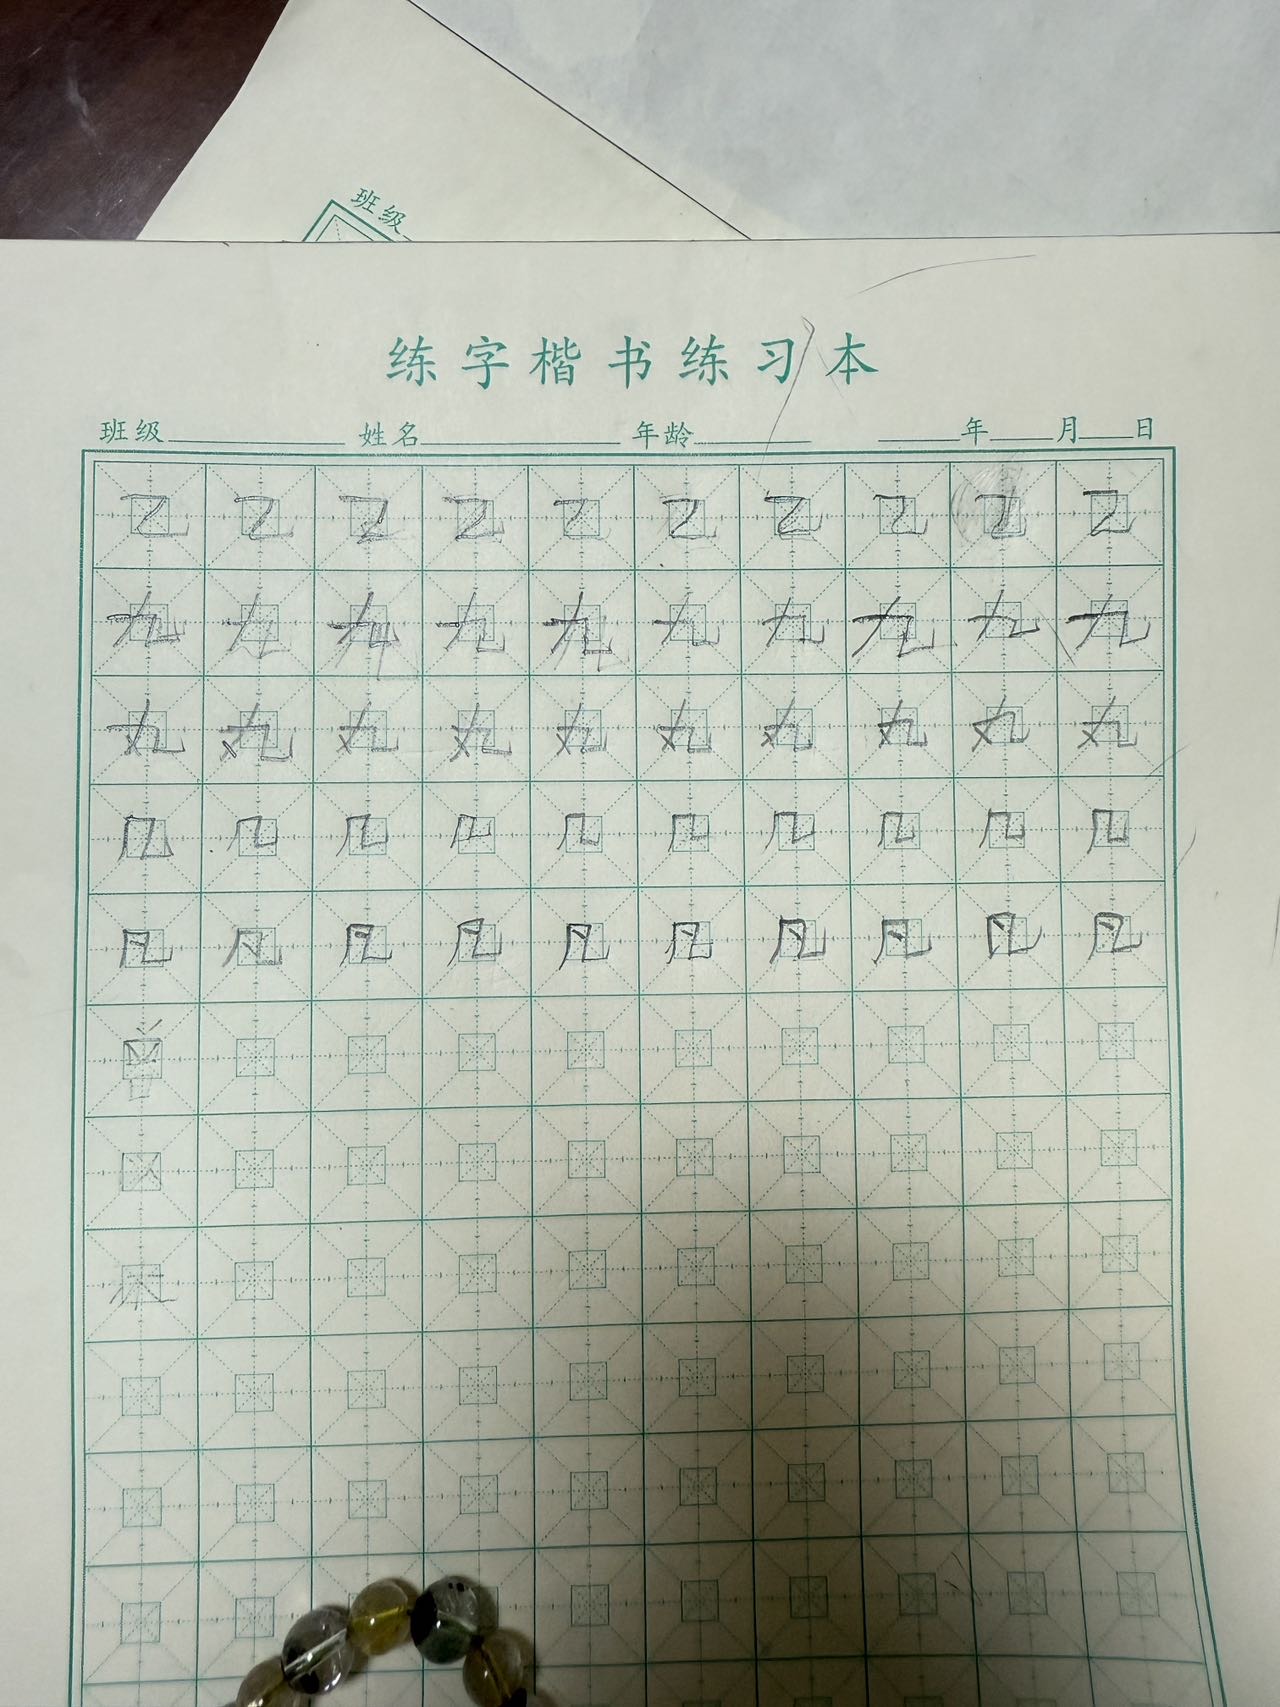 班级
练字楷书练习本
班级 姓名 年龄 年 月 日
乙 乙 乙 乙 乙 乙 乙 乙 乙 乙
九 九 九 九 九 九 九 九 九 九
丸 丸 丸 丸 丸 丸 丸 丸 丸 丸
几 几 几 几 几 几 几 几 几 几
凡 凡 凡 凡 凡 凡 凡 凡 凡 凡